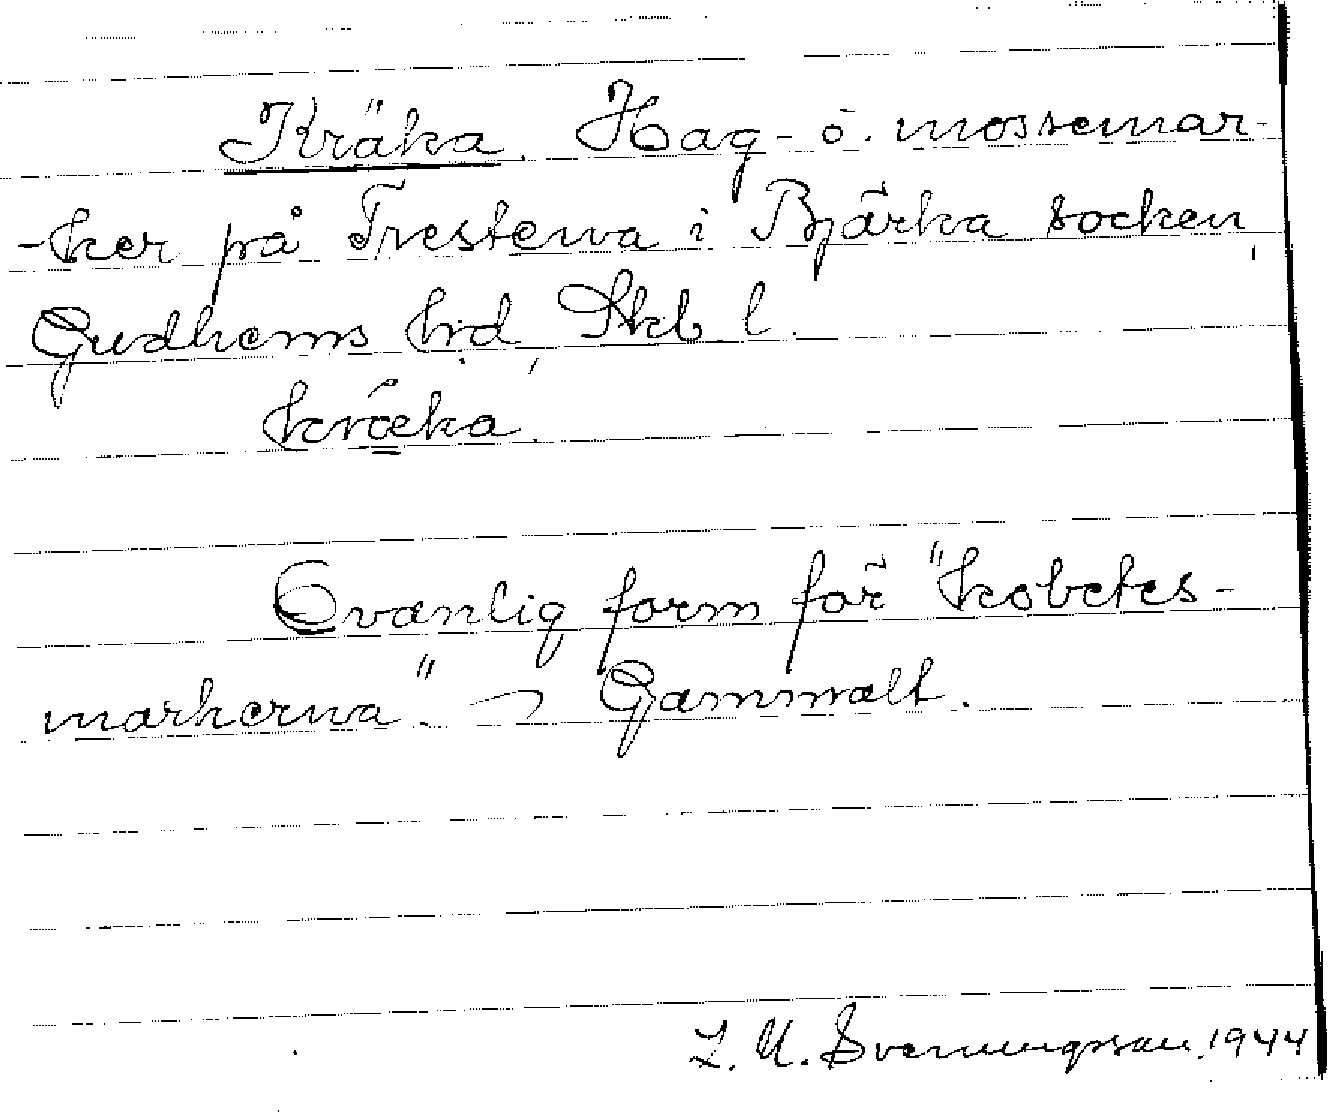 Kräka. Hag- o. mossemar-
-ker på Trestena i Bjärka socken,
Gudhems hrd, Skb l.
kräka.
Ovanlig form för "kobetes-
markerna". Gammalt.
L. M. Svenungsson, 1944